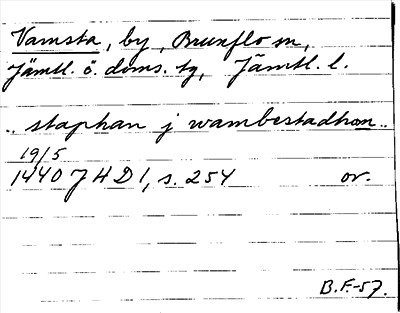 Vamsta, by, Brunflo sn,
Jämtl. ö. doms. tg, Jämtl. l.
.. staphan j wambestadhom..
19/5
1440 JHD 1, s. 254 or.
B.F.-57.